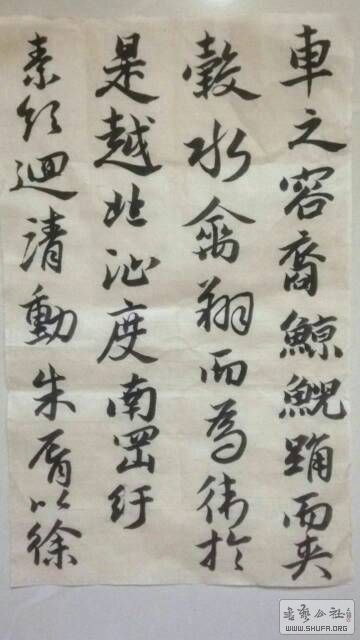 車之容裔鯨鯢踊而夾
轂水禽翔而為衛於
是越北沚度南岡紆
素領迴清動朱脣以徐
書艺公社
WWW.SHUFA.ORG